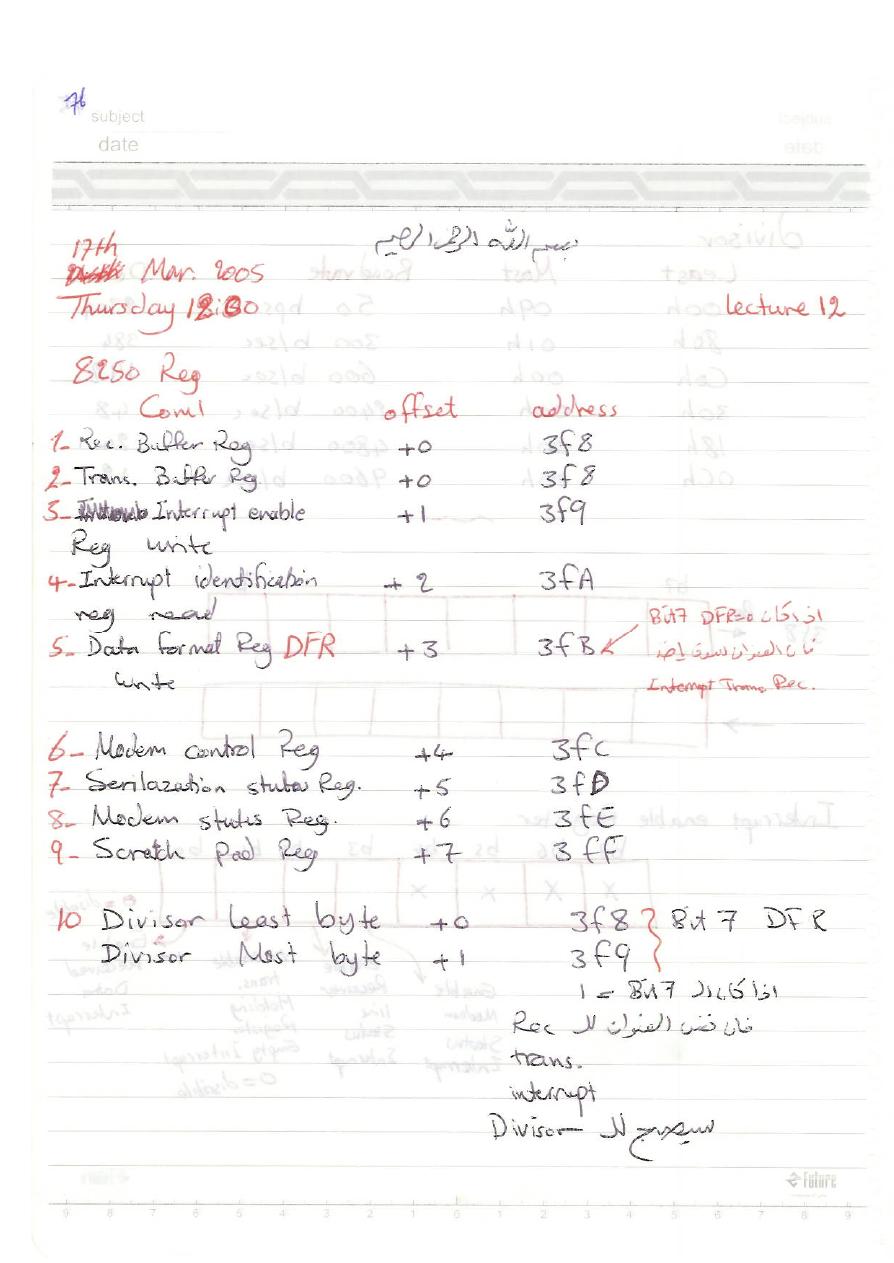 76
subject
date
بسم الله الرحمن الرحيم
17th
Mar. 2005
Thursday 12:00
lecture 12
8250 Reg
Com1 offset address
1- Rec. Buffer Reg +0 3f8
2- Trans. Buffer Reg +0 3f8
3- Interrupt enable +1 3f9
Reg write
4- Interrupt identification +2 3fA
reg read
5- Data format Reg DFR +3 3fB
write
اذا كان Bit7 DFR=0
فان العنوان سوف
Interrupt Trans. Rec.
6- Modem control Reg +4 3fC
7- Serilazation status Reg. +5 3fD
8- Modem status Reg. +6 3fE
9- Scratch Pad Reg +7 3fF
10 Divisor Least byte +0 3f8 Bit 7 DFR
Divisor Most byte +1 3f9
اذا كان ال Bit7 = 1
فان نفس العنوان لل Rec
trans.
interrupt
سيصبح لل Divisor
Future
9 8 7 6 5 4 3 2 1 0 1 2 3 4 5 6 7 8 9